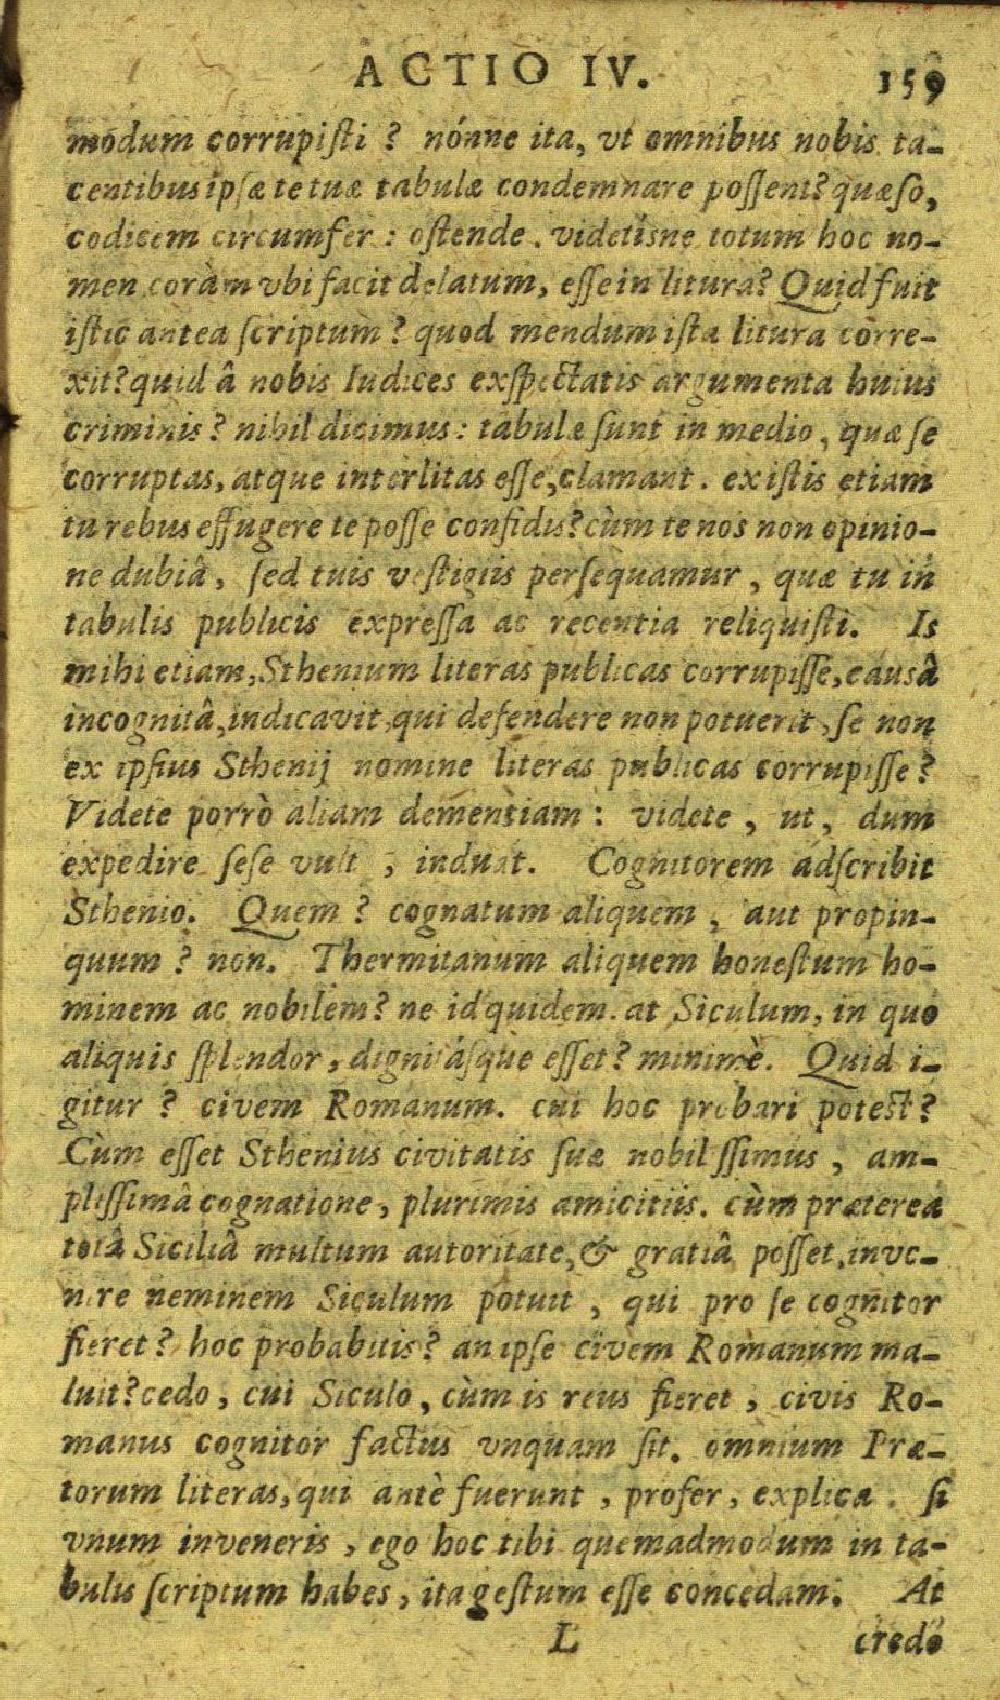 ACTIO IV. 159
modum corrupiſti ? nónne ita, vt omnibus nobis ta-
centibus ipſæ te tuæ tabulæ condemnare poſſent? quæſo,
codicem circumfer : oſtende . videtísne totum hoc no-
men coràm vbi facit delatum, eſſe in litura? Quid fuit
iſtic antea ſcriptum ? quod mendum iſta litura corre-
xit? quid â nobis Iudices exſpectatis argumenta huius
criminis ? nihil dicimus : tabulæ ſunt in medio, quæ ſe
corruptas, atque interlitas eſſe, clamant . ex iſtis etiam
tu rebus effugere te poſſe confidis? cùm te nos non opinio-
ne dubiâ, ſed tuis veſtigiis perſequamur , quæ tu in
tabulis publicis expreſſa ac recentia reliquiſti. Is
mihi etiam, Sthenium literas publicas corrupiſſe, causâ
incognitâ, indicavit, qui defendere non potuerit, ſe non
ex ipſius Sthenij nomine literas publicas corrupiſſe ?
Videte porrò aliam dementiam : videte , ut , dum
expedire ſeſe vult , induat. Cognitorem adſcribit
Sthenio. Quem ? cognatum aliquem , aut propin-
quum ? non. Thermitanum aliquem honeſtum ho-
minem ac nobilem? ne id quidem. at Siculum, in quo
aliquis ſplendor, dignitáſque eſſet? minimè. Quid i-
gitur ? civem Romanum. cui hoc probari poteſt?
Cùm eſſet Sthenius civitatis ſuæ nobiliſſimus , am-
pliſſimâ cognatione, plurimis amicitiis. cùm præterea
totâ Siciliâ multum autoritate, & gratiâ poſſet, inve-
nire neminem Siculum potuit , qui pro ſe cognitor
fieret ? hoc probabitis? an ipſe civem Romanum ma-
luit? cedo , cui Siculo , cùm is reus fieret , civis Ro-
manus cognitor factus vnquam ſit. omnium Præ-
torum literas, qui antè fuerunt , profer, explica . ſi
vnum inveneris , ego hoc tibi quemadmodum in ta-
bulis ſcriptum habes, ita geſtum eſſe concedam. At
L credo